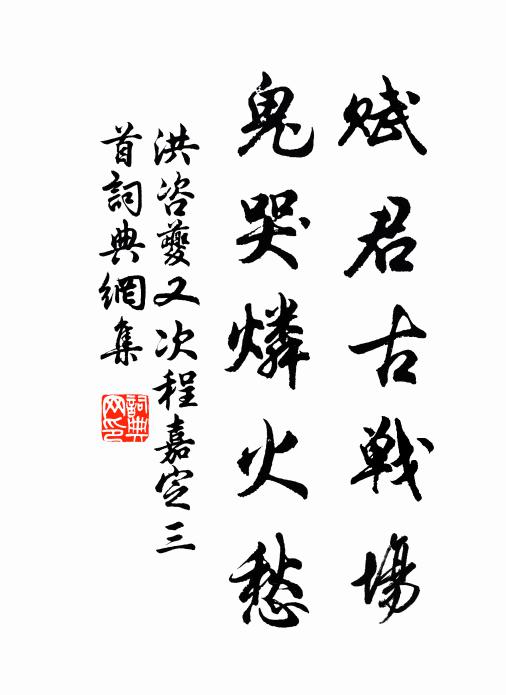 赋君古戰場
鬼哭燐火愁
洪咨夔又次程嘉定三
首詞典網集
詞典网印